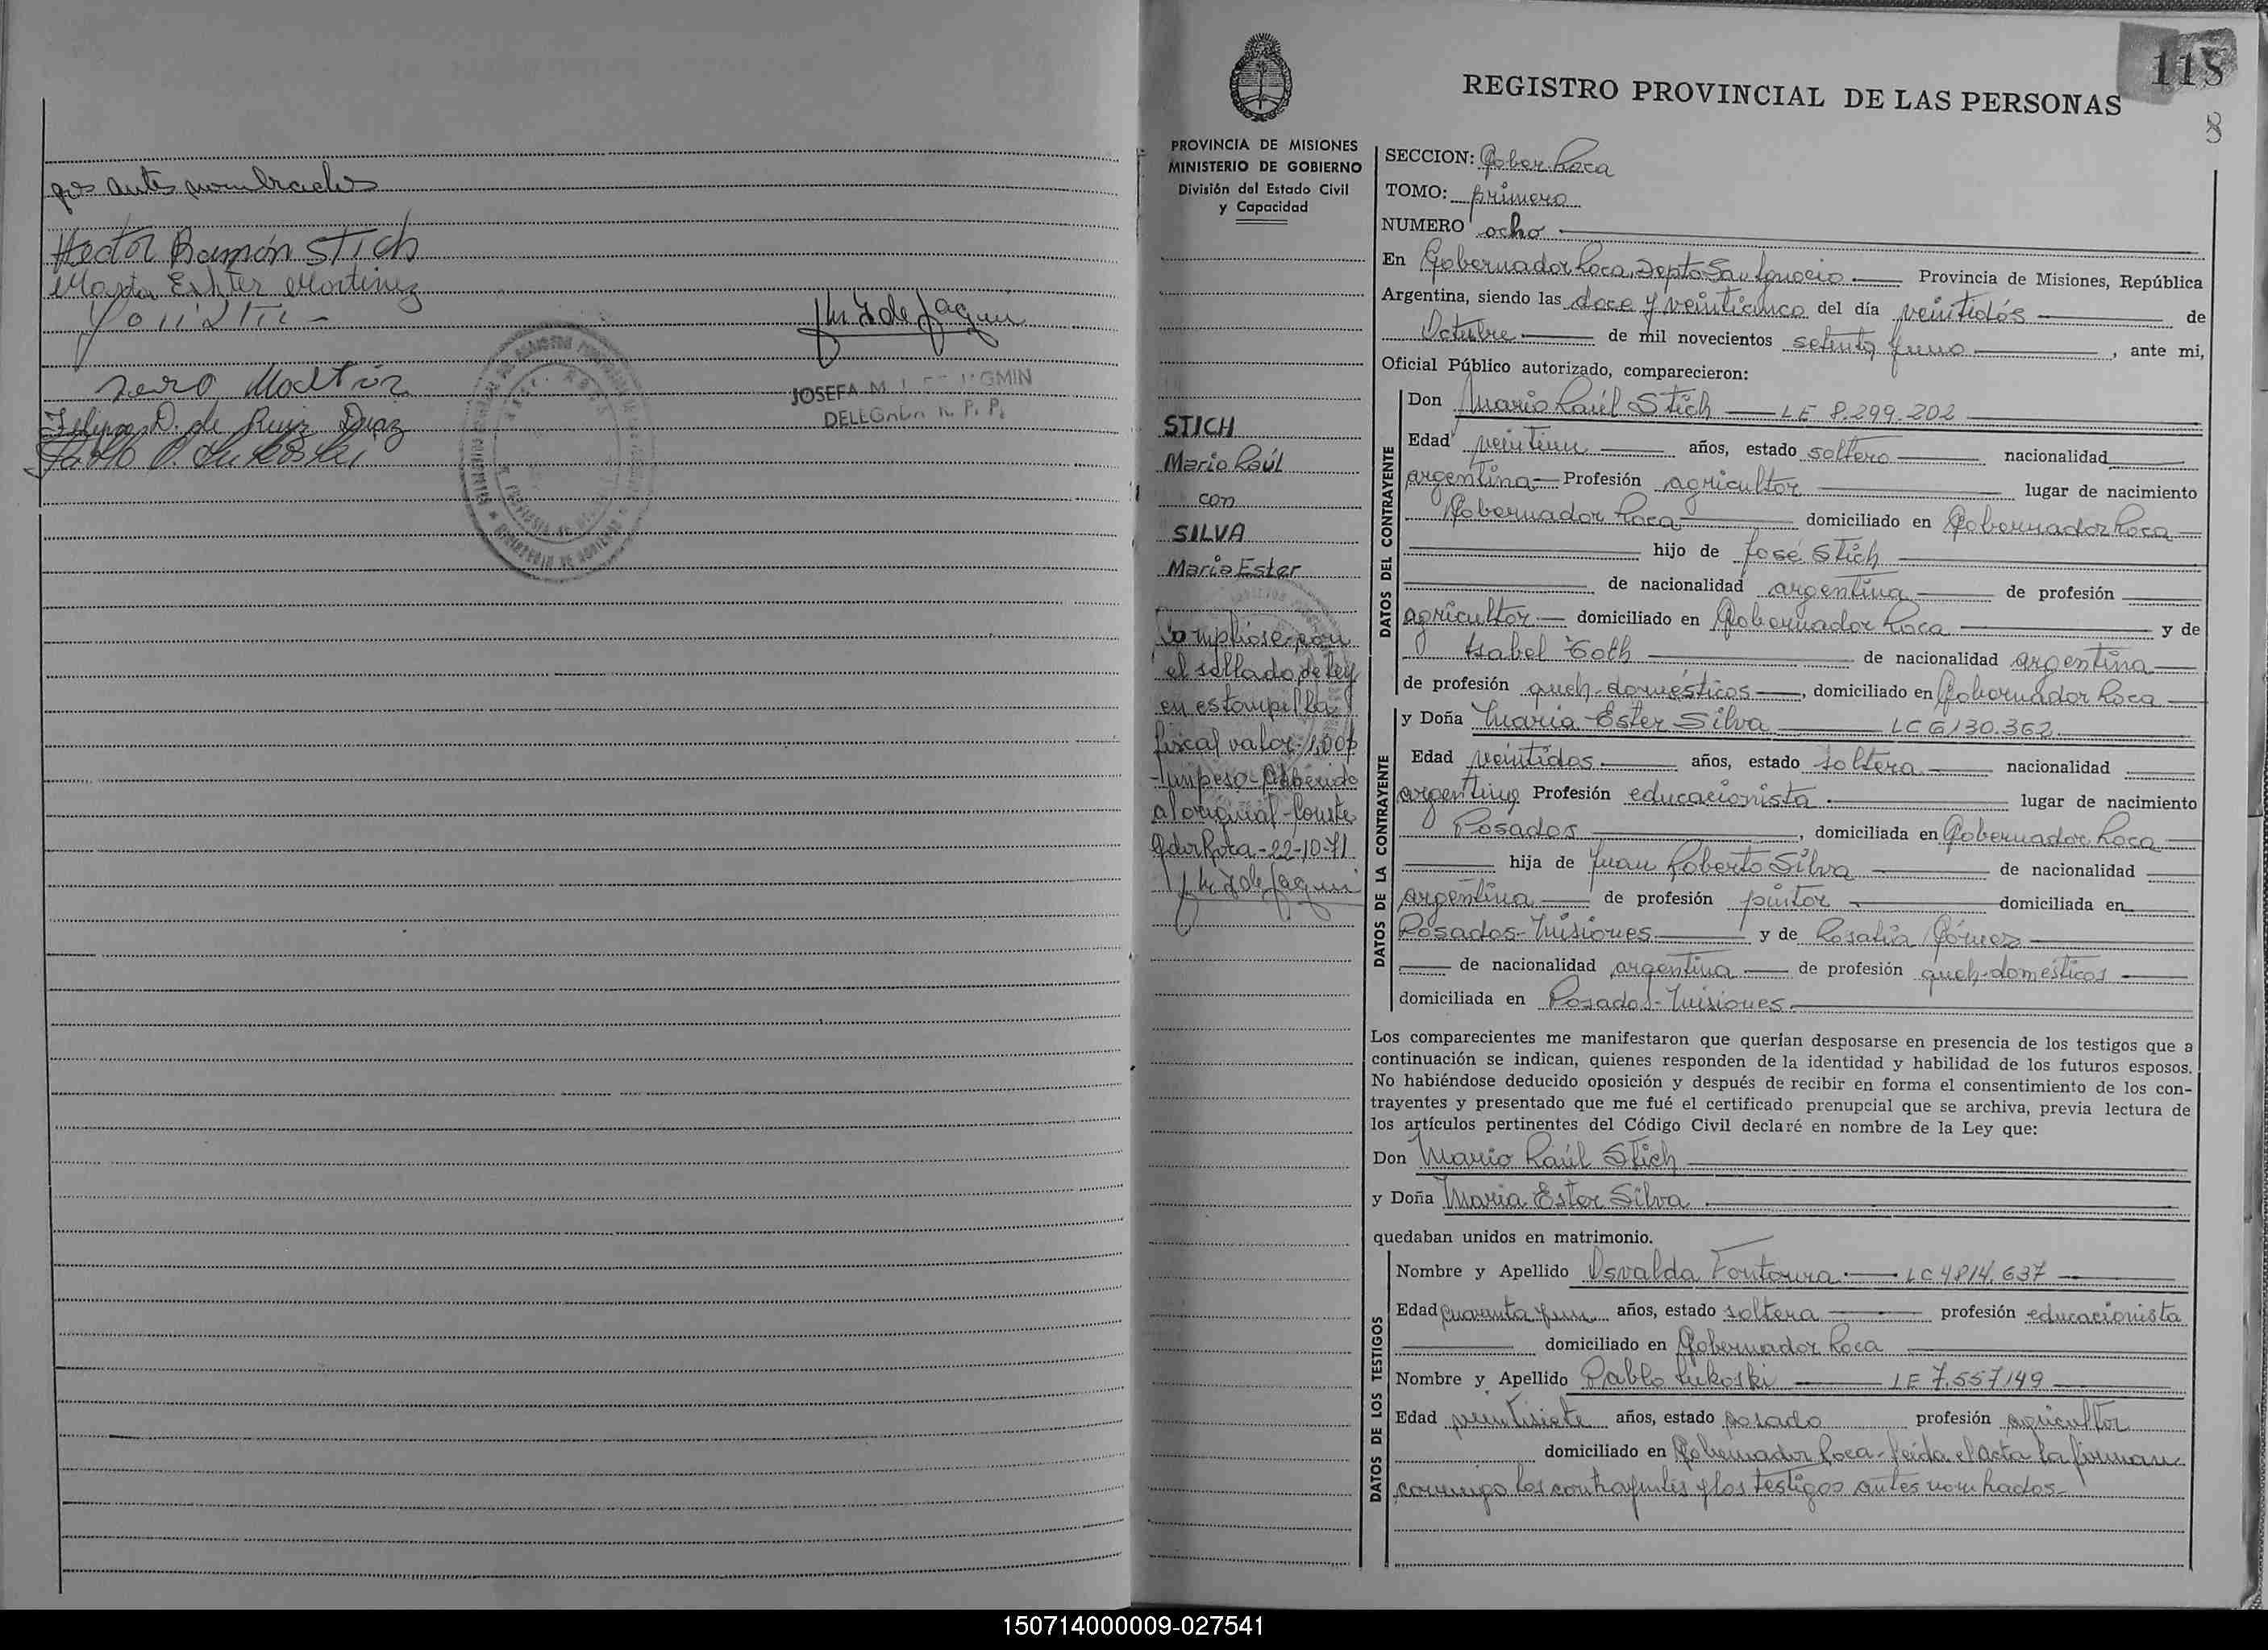 gos antes nombrados
Hector Ramón Stich
Marta Ester Martinez
José Stich
Martin
Felipa D. de Ruiz Diaz
Pablo Lukoski
JOSEFA M.
118
8
REGISTRO PROVINCIAL DE LAS PERSONAS
PROVINCIA DE MISIONES
MINISTERIO DE GOBIERNO
División del Estado Civil
y Capacidad
STICH
Mario Raúl
con
SILVA
Maria Ester
Cumpliose con
el sellado de ley
en estampilla
fiscal valor 1,00$
-un peso- Adherido
al original-Conste
Gdor Roca-22-10-71
SECCION: Gober. Roca
TOMO: primero
NUMERO ocho
En Gobernador Roca, Depto San Ignacio Provincia de Misiones, República
Argentina, siendo las doce y veinticinco del día veintidós de
Octubre de mil novecientos setenta y uno, ante mi,
Oficial Público autorizado, comparecieron:
DATOS DEL CONTRAYENTE
Don Mario Raúl Stich LE 8.299.202
Edad veintiun años, estado soltero nacionalidad
argentina Profesión agricultor lugar de nacimiento
Gobernador Roca domiciliado en Gobernador Roca
hijo de José Stich
de nacionalidad argentina de profesión
agricultor domiciliado en Gobernador Roca y de
Isabel Toth de nacionalidad argentina
de profesión queh-domésticos, domiciliado en Gobernador Roca
DATOS DE LA CONTRAYENTE
y Doña Maria Ester Silva LC 6130.362
Edad veintidos años, estado soltera nacionalidad
argentina Profesión educacionista lugar de nacimiento
Posadas, domiciliada en Gobernador Roca
hija de Juan Roberto Silva de nacionalidad
argentina de profesión pintor domiciliada en
Posadas-Misiones y de Rosalia Gómez
de nacionalidad argentina de profesión queh-domésticos
domiciliada en Posadas-Misiones
Los comparecientes me manifestaron que querían desposarse en presencia de los testigos que a
continuación se indican, quienes responden de la identidad y habilidad de los futuros esposos.
No habiéndose deducido oposición y después de recibir en forma el consentimiento de los con-
trayentes y presentado que me fué el certificado prenupcial que se archiva, previa lectura de
los artículos pertinentes del Código Civil declaré en nombre de la Ley que:
Don Mario Raúl Stich
y Doña Maria Ester Silva
quedaban unidos en matrimonio.
DATOS DE LOS TESTIGOS
Nombre y Apellido Osvalda Fontoura LC 4814.637
Edad cuarenta y un años, estado soltera profesión educacionista
domiciliado en Gobernador Roca
Nombre y Apellido Pablo Lukoski LE 7.557149
Edad veintisiete años, estado casado profesión agricultor
domiciliado en Gobernador Roca-Leida el acta la firman
conmigo los contrayentes y los testigos antes nombrados
150714000009-027541